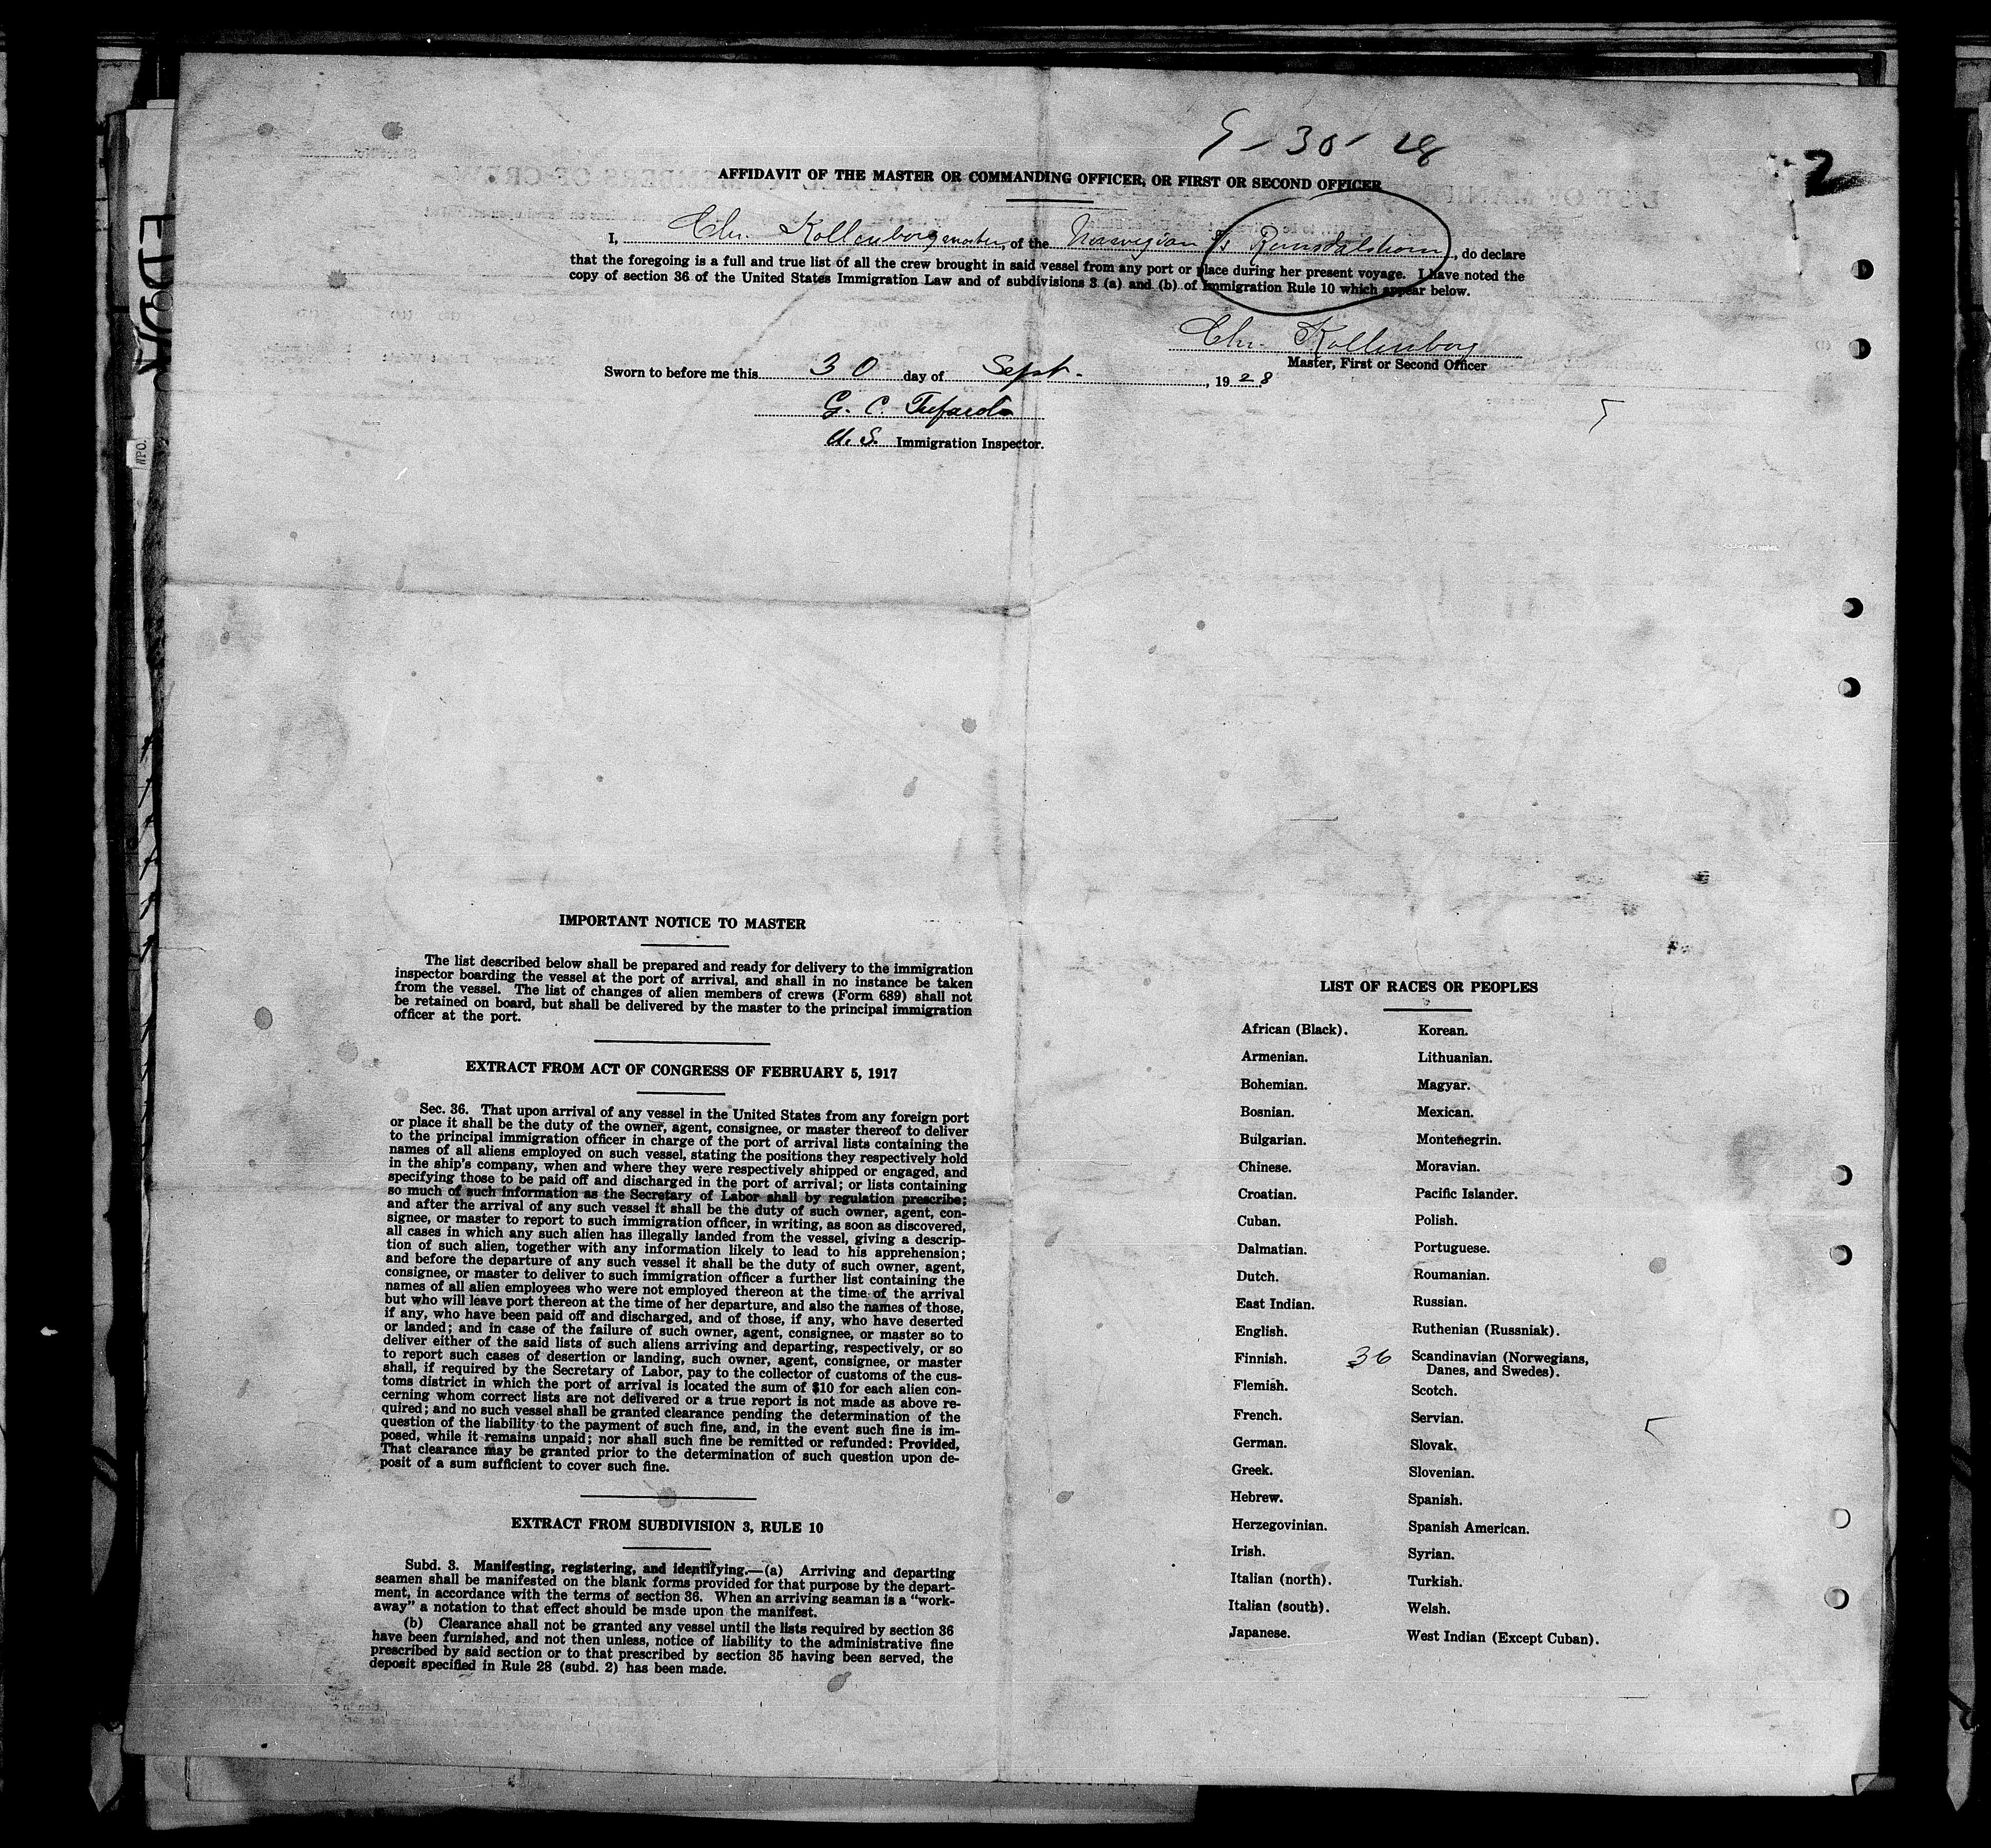 9-30-28
2
AFFIDAVIT OF THE MASTER OR COMMANDING OFFICER, OR FIRST OR SECOND OFFICER
I, Chr. Kollenborg master, of the Norwegian s/s Romsdalshorn, do declare
that the foregoing is a full and true list of all the crew brought in said vessel from any port or place during her present voyage. I have noted the
copy of section 36 of the United States Immigration Law and of subdivisions 3 (a) and (b) of Immigration Rule 10 which appear below.
Chr. Kollenborg
Master, First or Second Officer
Sworn to before me this 30 day of Sept., 1928
G. C.
U.S. Immigration Inspector.
IMPORTANT NOTICE TO MASTER
The list described below shall be prepared and ready for delivery to the immigration
inspector boarding the vessel at the port of arrival, and shall in no instance be taken
from the vessel. The list of changes of alien members of crews (Form 689) shall not
be retained on board, but shall be delivered by the master to the principal immigration
officer at the port.
EXTRACT FROM ACT OF CONGRESS OF FEBRUARY 5, 1917
Sec. 36. That upon arrival of any vessel in the United States from any foreign port
or place it shall be the duty of the owner, agent, consignee, or master thereof to deliver
to the principal immigration officer in charge of the port of arrival lists containing the
names of all aliens employed on such vessel, stating the positions they respectively hold
in the ship's company, when and where they were respectively shipped or engaged, and
specifying those to be paid off and discharged in the port of arrival; or lists containing
so much of such information as the Secretary of Labor shall by regulation prescribe;
and after the arrival of any such vessel it shall be the duty of such owner, agent, con-
signee, or master to report to such immigration officer, in writing, as soon as discovered,
all cases in which any such alien has illegally landed from the vessel, giving a descrip-
tion of such alien, together with any information likely to lead to his apprehension;
and before the departure of any such vessel it shall be the duty of such owner, agent,
consignee, or master to deliver to such immigration officer a further list containing the
names of all alien employees who were not employed thereon at the time of the arrival
but who will leave port thereon at the time of her departure, and also the names of those,
if any, who have been paid off and discharged, and of those, if any, who have deserted
or landed; and in case of the failure of such owner, agent, consignee, or master so to
deliver either of the said lists of such aliens arriving and departing, respectively, or so
to report such cases of desertion or landing, such owner, agent, consignee, or master
shall, if required by the Secretary of Labor, pay to the collector of customs of the cus-
toms district in which the port of arrival is located the sum of $10 for each alien con-
cerning whom correct lists are not delivered or a true report is not made as above re-
quired; and no such vessel shall be granted clearance pending the determination of the
question of the liability to the payment of such fine, and, in the event such fine is im-
posed, while it remains unpaid; nor shall such fine be remitted or refunded: Provided,
That clearance may be granted prior to the determination of such question upon de-
posit of a sum sufficient to cover such fine.
EXTRACT FROM SUBDIVISION 3, RULE 10
Subd. 3. Manifesting, registering, and identifying.—(a) Arriving and departing
seamen shall be manifested on the blank forms provided for that purpose by the depart-
ment, in accordance with the terms of section 36. When an arriving seaman is a "work-
away" a notation to that effect should be made upon the manifest.
(b) Clearance shall not be granted any vessel until the lists required by section 36
have been furnished, and not then unless, notice of liability to the administrative fine
prescribed by said section or to that prescribed by section 35 having been served, the
deposit specified in Rule 28 (subd. 2) has been made.
LIST OF RACES OR PEOPLES
African (Black).
Armenian.
Bohemian.
Bosnian.
Bulgarian.
Chinese.
Croatian.
Cuban.
Dalmatian.
Dutch.
East Indian.
English.
Finnish.
Flemish.
French.
German.
Greek.
Hebrew.
Herzegovinian.
Irish.
Italian (north).
Italian (south).
Japanese.
Korean.
Lithuanian.
Magyar.
Mexican.
Montenegrin.
Moravian.
Pacific Islander.
Polish.
Portuguese.
Roumanian.
Russian.
Ruthenian (Russniak).
36 Scandinavian (Norwegians,
Danes, and Swedes).
Scotch.
Servian.
Slovak.
Slovenian.
Spanish.
Spanish American.
Syrian.
Turkish.
Welsh.
West Indian (Except Cuban).